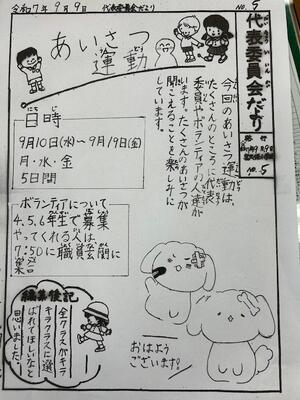 令和7年9月9日 代表委員会だより NO.5
代表委員会だより
だいひょういいんかい
発行
NO.5
あいさつ
運動
今回のあいさつ運動は、
たくさんのところに代表
委員やボランティアの人達が
います。たくさんのあいさつが
聞こえることを楽しみに
しています。
にちじ
日時
9月10日(水)〜9月19日(金)
月・水・金
5日間
ボランティアについて
4.5.6年生で募集
やってくれる人は、
7:50に職員玄関前に
集合
編集後記
全クラスがキラ
キラクラスに選
ばれてほしいなと
思いました。
おはよう
ございます!